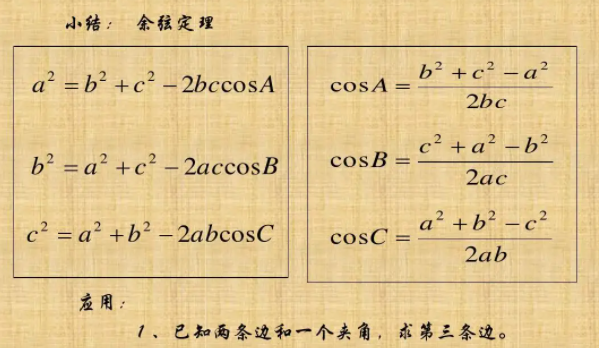 小结： 余弦定理
a² = b² + c² − 2bccosA
b² = a² + c² − 2accosB
c² = a² + b² − 2abcosC
cosA = (b² + c² − a²)/(2bc)
cosB = (c² + a² − b²)/(2ac)
cosC = (a² + b² − c²)/(2ab)
应用：
1、已知两条边和一个夹角，求第三条边。